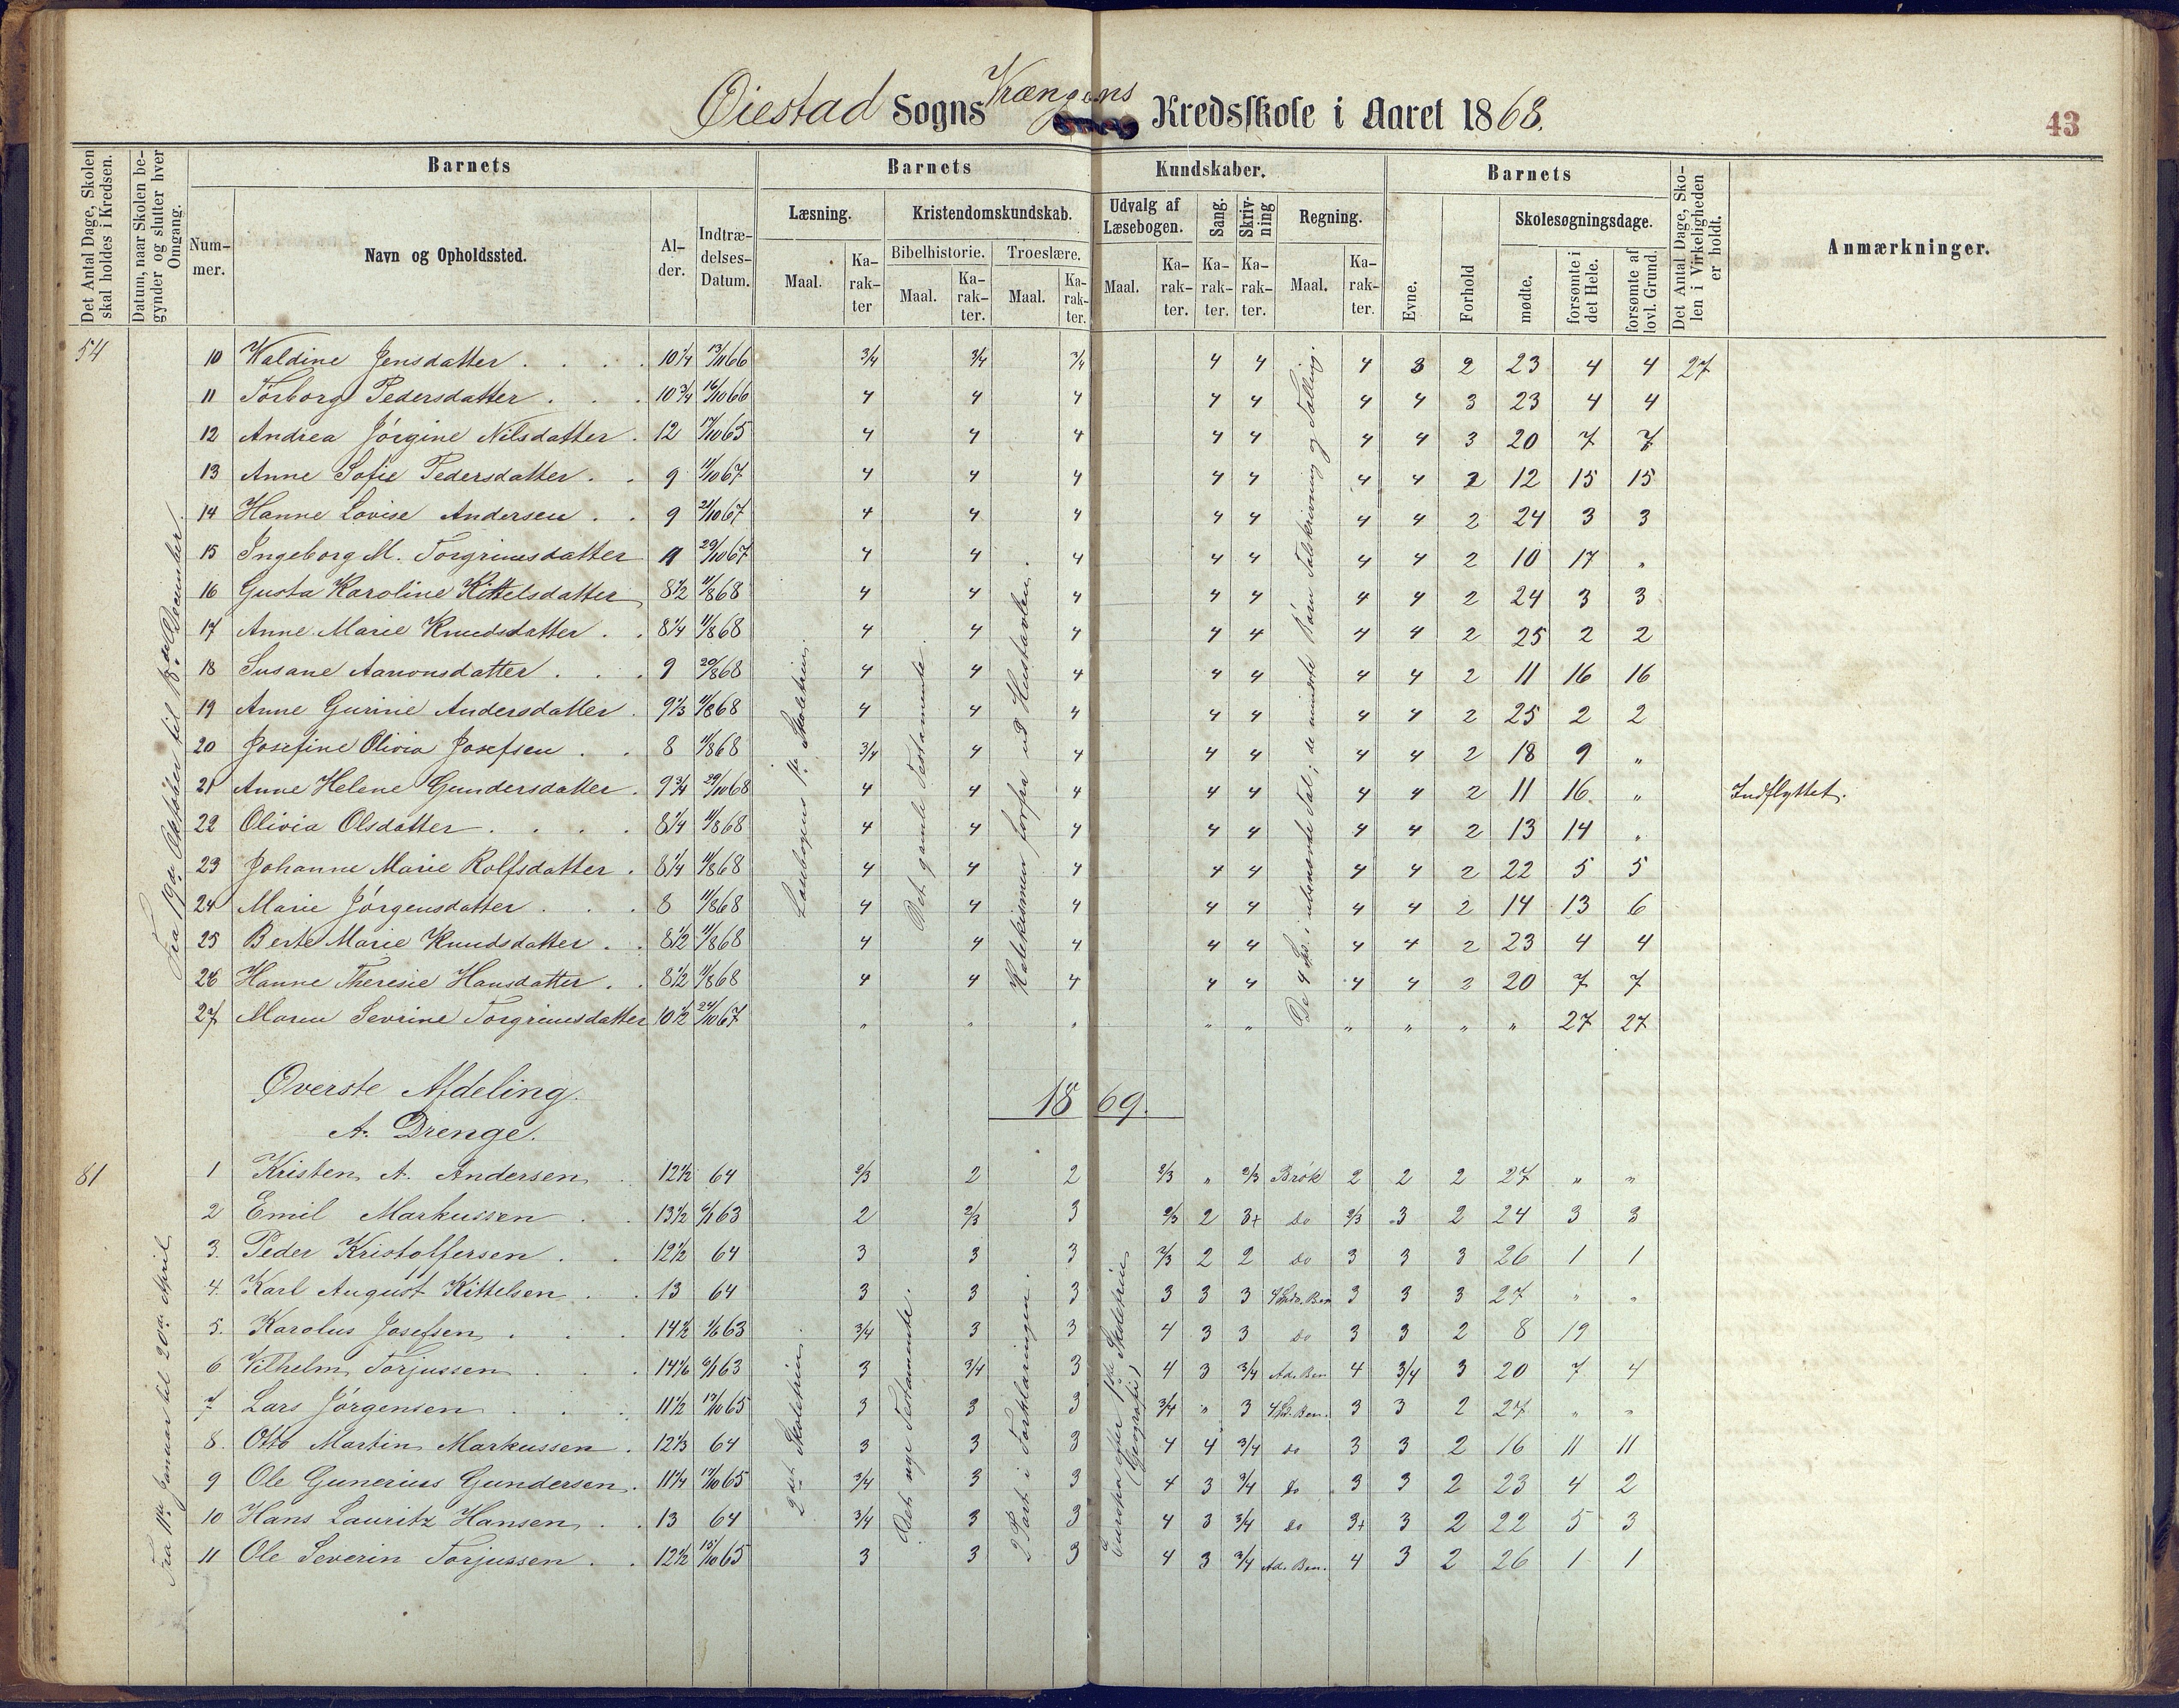 Øiestad Sogns Vrængens Kredsskole i Aaret 1868.
43
Det Antal Dage, Skolen skal holdes i Kredsen.
Datum, naar Skolen begynder og slutter hver Omgang.
Barnets
Nummer.
Navn og Opholdssted.
Alder.
Indtrædelses-Datum.
Barnets Kundskaber.
Læsning.
Maal.
Karakter
Kristendomskundskab.
Bibelhistorie.
Maal.
Karakter.
Troeslære.
Maal.
Karakter.
Udvalg af Læsebogen.
Maal.
Karakter.
Sang.
Karakter.
Skrivning
Karakter.
Regning.
Maal.
Karakter.
Barnets
Evne.
Forhold
Skolesøgningsdage.
mødte.
forsømte i det Hele.
forsømte af lovl. Grund.
Det Antal Dage, Skolen i Virkeligheden er holdt.
Anmærkninger.
54
Fra 19de Oktober til 18de December.
Læsebogens 1ste Skoletrin.
Det gamle Testamente.
Katekismen forfra ud Hustavlen.
De 4 Sp. i ubenævnte Tal; de mindste Børn Talskrivning og Tælling.
10 Valdine Jensdatter 10 1/4 13/11 66 3/4 3/4 3/4 4 4 4 3 2 23 4 4 27
11 Torborg Pedersdatter 10 3/4 16/10 66 4 4 4 4 4 4 4 3 23 4 4
12 Andrea Jørgine Nilsdatter 12 17/10 65 4 4 4 4 4 4 4 3 20 7 7
13 Anne Sofie Pedersdatter 9 11/10 67 4 4 4 4 4 4 4 2 12 15 15
14 Hanne Lovise Andersen 9 21/10 67 4 4 4 4 4 4 4 2 24 3 3
15 Ingeborg M. Torgrimsdatter 11 29/10 67 4 4 4 4 4 4 4 2 10 17 "
16 Gusta Karoline Kittelsdatter 8 1/2 11/8 68 4 4 4 4 4 4 4 2 24 3 3
17 Anne Marie Knudsdatter 8 1/4 11/8 68 4 4 4 4 4 4 4 2 25 2 2
18 Susane Aanonsdatter 9 20/8 68 4 4 4 4 4 4 4 2 11 16 16
19 Anne Gurine Andersdatter 9 1/3 11/8 68 4 4 4 4 4 4 4 2 25 2 2
20 Josefine Olivia Josefsen 8 11/8 68 3/4 4 4 4 4 4 4 2 18 9 "
21 Anne Helene Gundersdatter 9 3/4 29/10 68 4 4 4 4 4 4 4 2 11 16 " Indflyttet.
22 Olivia Olsdatter 8 1/4 11/8 68 4 4 4 4 4 4 4 2 13 14 "
23 Johanne Marie Rolfsdatter 8 1/4 11/8 68 4 4 4 4 4 4 4 2 22 5 5
24 Marie Jørgensdatter 8 11/8 68 4 4 4 4 4 4 4 2 14 13 6
25 Berte Marie Knudsdatter 8 1/2 11/8 68 4 4 4 4 4 4 4 2 23 4 4
26 Hanne Theresie Hansdatter 8 1/2 11/8 68 4 4 4 4 4 4 4 2 20 7 7
27 Maren Sevrine Torgrimsdatter 10 1/2 24/10 67 " " " " " " " " " 27 27
Øverste Afdeling.
1869.
A. Drenge.
81
Fra 11te Januar til 20de April
2det Skoletrin.
Det nye Testamente.
2 Part i Forklaringen.
Europa efter 1ste Skoletrin (Geografi)
1 Kristen A. Andersen 12 1/2 64 2/3 2 2 2/3 " 2/3 Brøk 2 2 2 27 " "
2 Emil Markussen 13 1/2 6/1 63 2 2/3 3 2/3 2 3+ do 2/3 3 2 24 3 3
3. Peder Kristoffersen 12 1/2 64 3 3 3 2/3 2 2 do 3 3 3 26 1 1
4. Karl August Kittelsen 13 64 3 3 3 3 3 3 3 3 3 27 " "
5. Karolus Josefsen 14 1/2 1/6 63 3/4 3 3 4 3 3 do 3 3 2 8 19
6 Vilhelm Torjussen 14 1/6 6/1 63 3 3/4 3 4 3 3/4 Ad. Ben 4 3/4 3 20 7 4
7 Lars Jørgensen 11 1/2 17/10 65 3 3 3 3/4 " 3 4 Sp. Ben. 3 3 2 27 " "
8. Otto Martin Markussen 12 1/3 64 3 3 3 4 4 3/4 do 3 3 2 16 11 11
9 Ole Gunerius Gundersen 11 1/4 17/10 65 3/4 3 3 4 3 3/4 do 3 3 2 23 4 2
10 Hans Lauritz Hansen 13 64 3/4 3 3 4 3 3/4 do 3+ 3 2 22 5 3
11 Ole Severin Torjussen 12 1/2 15/10 65 3 3 3 4 3 3/4 Ad. Ben. 4 3 2 26 1 1